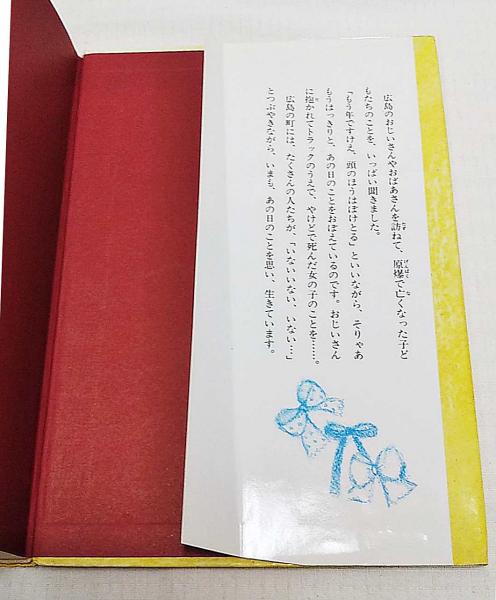 広島のおじいさんやおばあさんを訪ねて、原爆で亡くなった子ど
もたちのことを、いっぱい聞きました。
「もう年ですけえ、頭のほうはぼけとる」といいながら、そりゃあ
もうはっきりと、あの日のことをおぼえているのです。おじいさん
に抱かれてトラックのうえで、やけどで死んだ女の子のことを……。
広島の町には、たくさんの人たちが、「いないいない、いない…」
とつぶやきながら、いまも、あの日のことを思い、生きています。